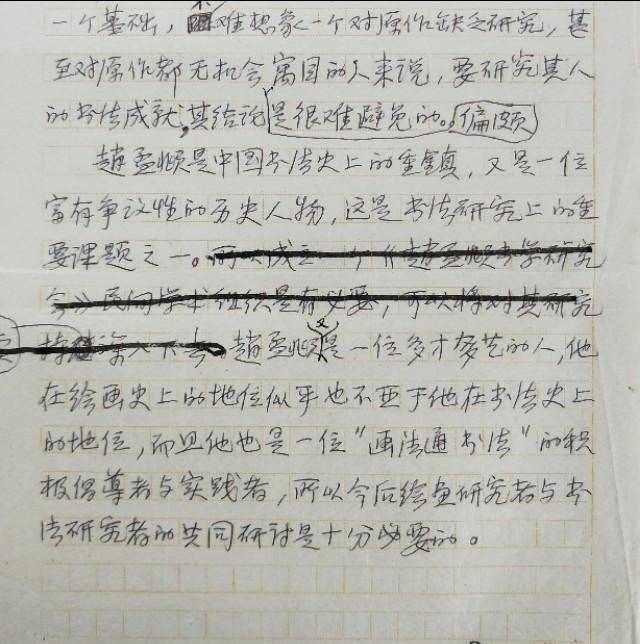 一个基础，不难想象一个对原作缺乏研究，甚
至对原作都无机会寓目的人来说，要研究其人
的书法成就，其结论是很难避免的。偏颇
趙孟頫是中国书法史上的重镇，又是一位
富有争议性的历史人物，这是书法研究上的重
要课题之一。所以成立一个《趙孟頫书学研究
会》民间学术组织是有必要，可以将对其研究
持续深入下去。趙孟頫又是一位多才多艺的人，他
在绘画史上的地位似乎也不亚于他在书法史上
的地位，而且他也是一位“画法通书法”的积
极倡导者与实践者，所以今后绘画研究者与书
法研究者的共同研讨是十分必要的。